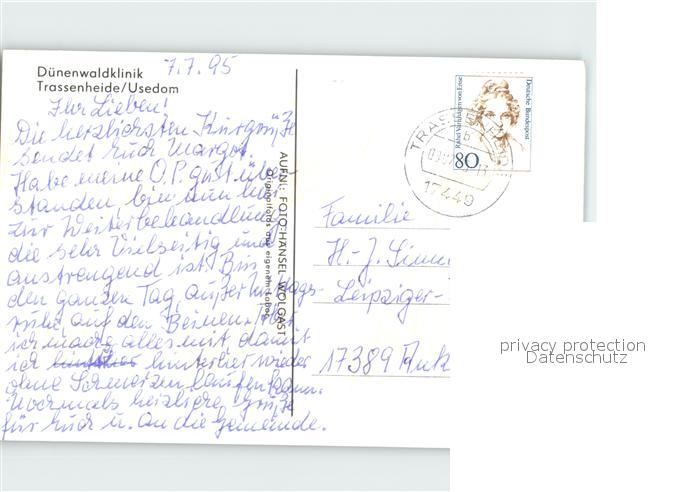 Dünenwaldklinik
Trassenheide/Usedom
7.7.95
Ihr Lieben!
Die herzlichsten Kurgrüße
sendet Euch Margot.
Habe meine O.P. gut über-
standen bin nun hier
zur Weiterbehandlung
die sehr Vielseitig und
anstrengend ist. Bin
den ganzen Tag, außer Mittags-
ruhe auf den Beinen.
ich mache alles mit damit
ich hinterher wieder
ohne Schmerzen laufen kann.
Nochmals herzliche Grüße
für Euch u. an die Gemeinde.
AUFNL: FOTO-HÄNSEL, WOLGAST
Originalfotos aus eigenem Labor
Deutsche Bundespost
80
17449
Familie
H.-J.
Leipziger-
17389
privacy protection
Datenschutz